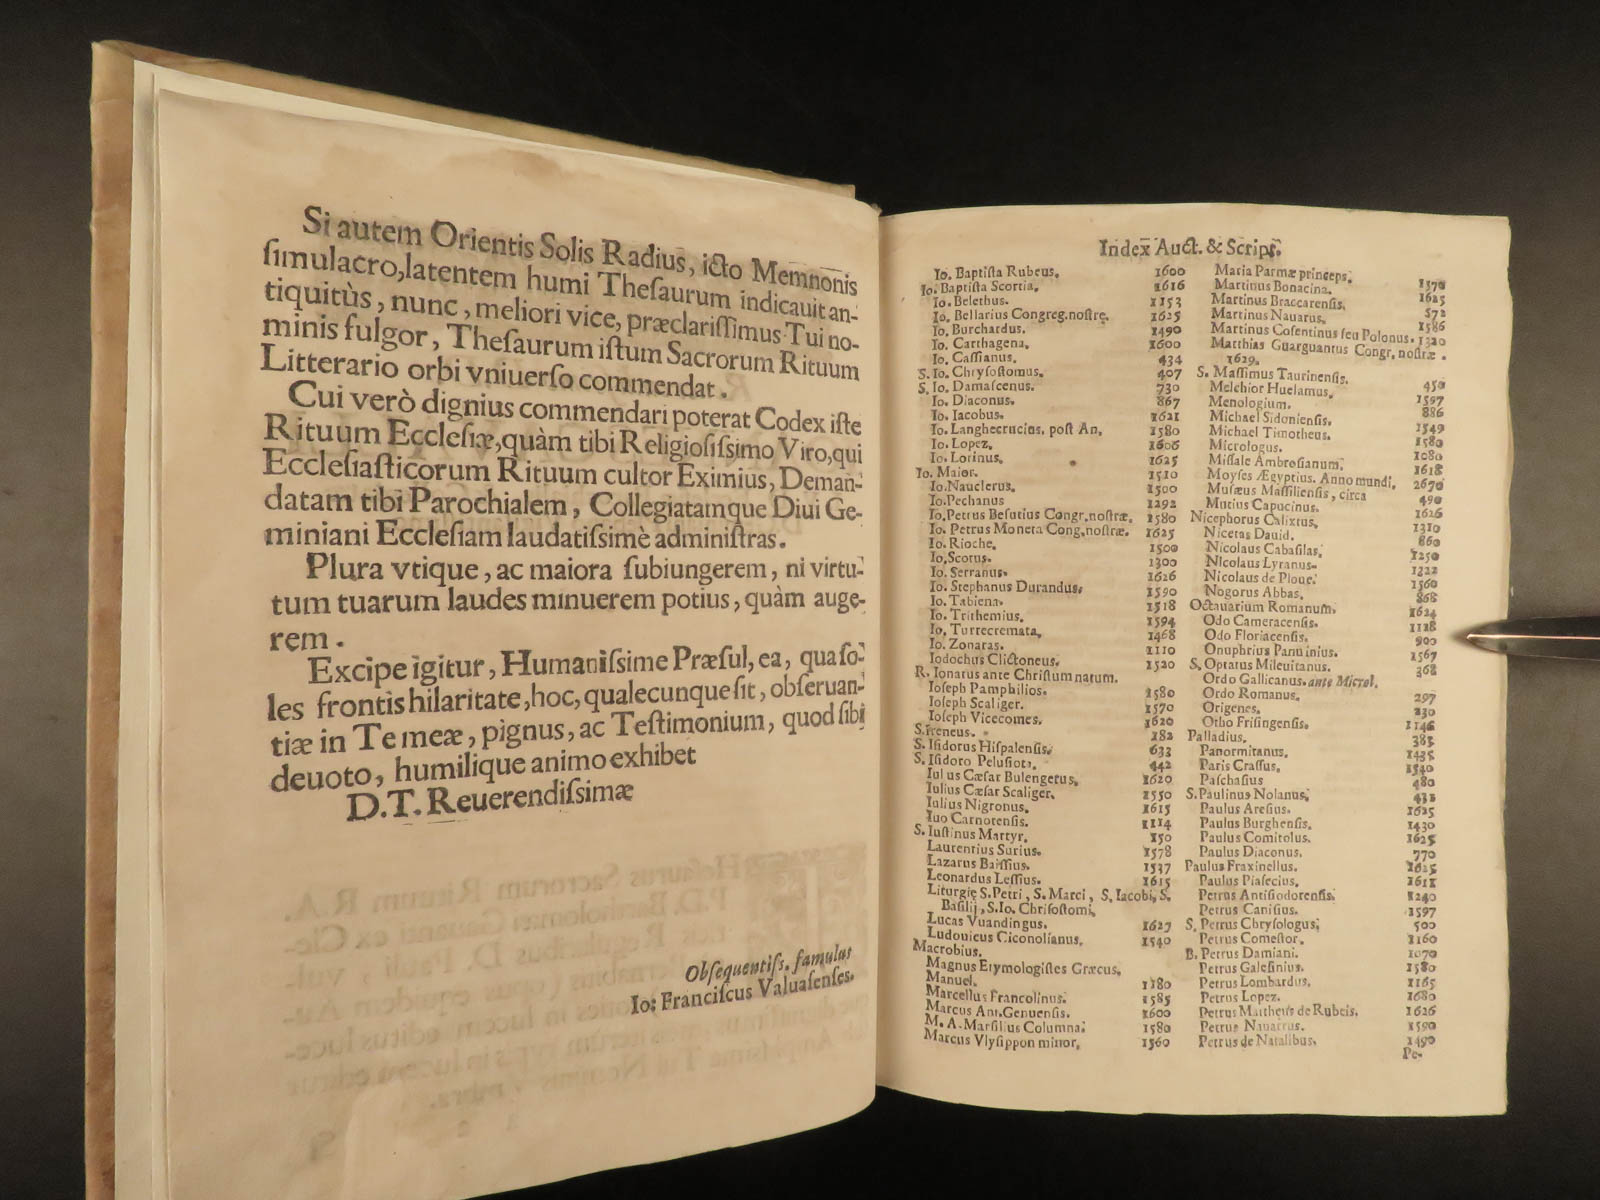 Si autem Orientis Solis Radius, icto Memnonis
simulacro, latentem humi Thesaurum indicauit an-
tiquitùs, nunc, meliori vice, præclarissimus Tui no-
minis fulgor, Thesaurum istum Sacrorum Rituum
Litterario orbi vniuerso commendat.
Cui verò dignius commendari poterat Codex iste
Rituum Ecclesiæ, quàm tibi Religiosissimo Viro, qui
Ecclesiasticorum Rituum cultor Eximius, Deman-
datam tibi Parochialem, Collegiatamque Diui Ge-
miniani Ecclesiam laudatissimè administras.
Plura vtique, ac maiora subiungerem, ni virtu-
tum tuarum laudes minuerem potius, quàm auge-
rem.
Excipe igitur, Humanissime Præsul, ea, qua so-
les frontis hilaritate, hoc, qualecunque sit, obseruan-
tiæ in Te meæ, pignus, ac Testimonium, quod sibi
deuoto, humilique animo exhibet
D. T. Reuerendissimæ
Obsequentiss. famulus
Io: Franciscus Valuasenses.
Index Auct. & Script.
Io. Baptista Rubeus. 1600
Io. Baptista Scortia. 1616
Io. Belethus. 1153
Io. Bellarius Congreg. nostrę. 1625
Io. Burchardus. 1490
Io. Carthagena. 1600
Io. Cassianus. 434
S. Io. Chrysostomus. 407
S. Io. Damascenus. 730
Io. Diaconus. 867
Io. Iacobus. 1621
Io. Langhecrucius. post An. 1580
Io. Lopez. 1606
Io. Lorinus. 1625
Io. Maior. 1510
Io. Nauclerus. 1500
Io. Pechanus 1292
Io. Petrus Besutius Congr. nostræ. 1580
Io. Petrus Moneta Cong. nostræ. 1625
Io. Rioche. 1500
Io. Scotus. 1300
Io. Serranus. 1626
Io. Stephanus Durandus. 1590
Io. Tabiena. 1518
Io. Trithemius. 1594
Io. Turrecremata. 1468
Io. Zonaras. 1110
Iodochus Clictoneus. 1520
R. Ionarus ante Christum natum.
Ioseph Pamphilios. 1580
Ioseph Scaliger. 1570
Ioseph Vicecomes. 1620
S. Ireneus. 182
S. Isidorus Hispalensis. 633
S. Isidoro Pelusiota. 442
Iulius Cæsar Bulengerus. 1620
Iulius Cæsar Scaliger. 1550
Iulius Nigronus. 1615
Iuo Carnotensis. 1114
S. Iustinus Martyr. 150
Laurentius Surius. 1578
Lazarus Baissius. 1537
Leonardus Lessius. 1615
Liturgię S. Petri, S. Marci, S. Iacobi, S.
Basilij, S. Io. Chrisostomi.
Lucas Vuandingus. 1627
Ludouicus Ciconolianus. 1540
Macrobius.
Magnus Etymologistes Græcus.
Manuel. 1180
Marcellus Francolinus. 1585
Marcus Ant. Genuensis. 1600
M. A. Marsilius Columna. 1580
Marcus Vlysippon minor. 1560
Maria Parmæ princeps. 1570
Martinus Bonacina. 1625
Martinus Braccarensis. 572
Martinus Nauarus. 1586
Martinus Cosentinus seu Polonus. 1320
Matthias Guarguantus Congr. nostræ.
1629.
S. Massimus Taurinensis. 450
Melchior Huelamus. 1597
Menologium. 886
Michael Sidoniensis. 1549
Michael Timotheus. 1580
Micrologus. 1080
Missale Ambrosianum. 1618
Moyses Ægyptius. Anno mundi. 2670
Musæus Massiliensis, circa 490
Mutius Capucinus. 1626
Nicephorus Calixtus. 1310
Nicetas Dauid. 860
Nicolaus Cabasilas. 1250
Nicolaus Lyranus. 1322
Nicolaus de Ploue. 1560
Nogorus Abbas. 868
Octauarium Romanum. 1624
Odo Cameracensis. 1128
Odo Floriacensis. 900
Onuphrius Panuinius. 1567
S. Optatus Mileuitanus. 368
Ordo Gallicanus. ante Microl.
Ordo Romanus. 297
Origenes. 230
Otho Frisingensis. 1146
Palladius. 385
Panormitanus. 1435
Paris Crassus. 1540
Paschasius 480
S. Paulinus Nolanus. 431
Paulus Aresius. 1625
Paulus Burghensis. 1430
Paulus Comitolus. 1625
Paulus Diaconus. 770
Paulus Fraxinellus. 1625
Paulus Piasecius. 1611
Petrus Antisiodorensis. 1240
Petrus Canisius. 1597
S. Petrus Chrysologus. 500
Petrus Comestor. 1160
B. Petrus Damiani. 1070
Petrus Galesinius. 1580
Petrus Lombardus. 1165
Petrus Lopez. 1680
Petrus Mattheus de Rubeis. 1626
Petrus Nauarrus. 1590
Petrus de Natalibus. 1490
Pe-